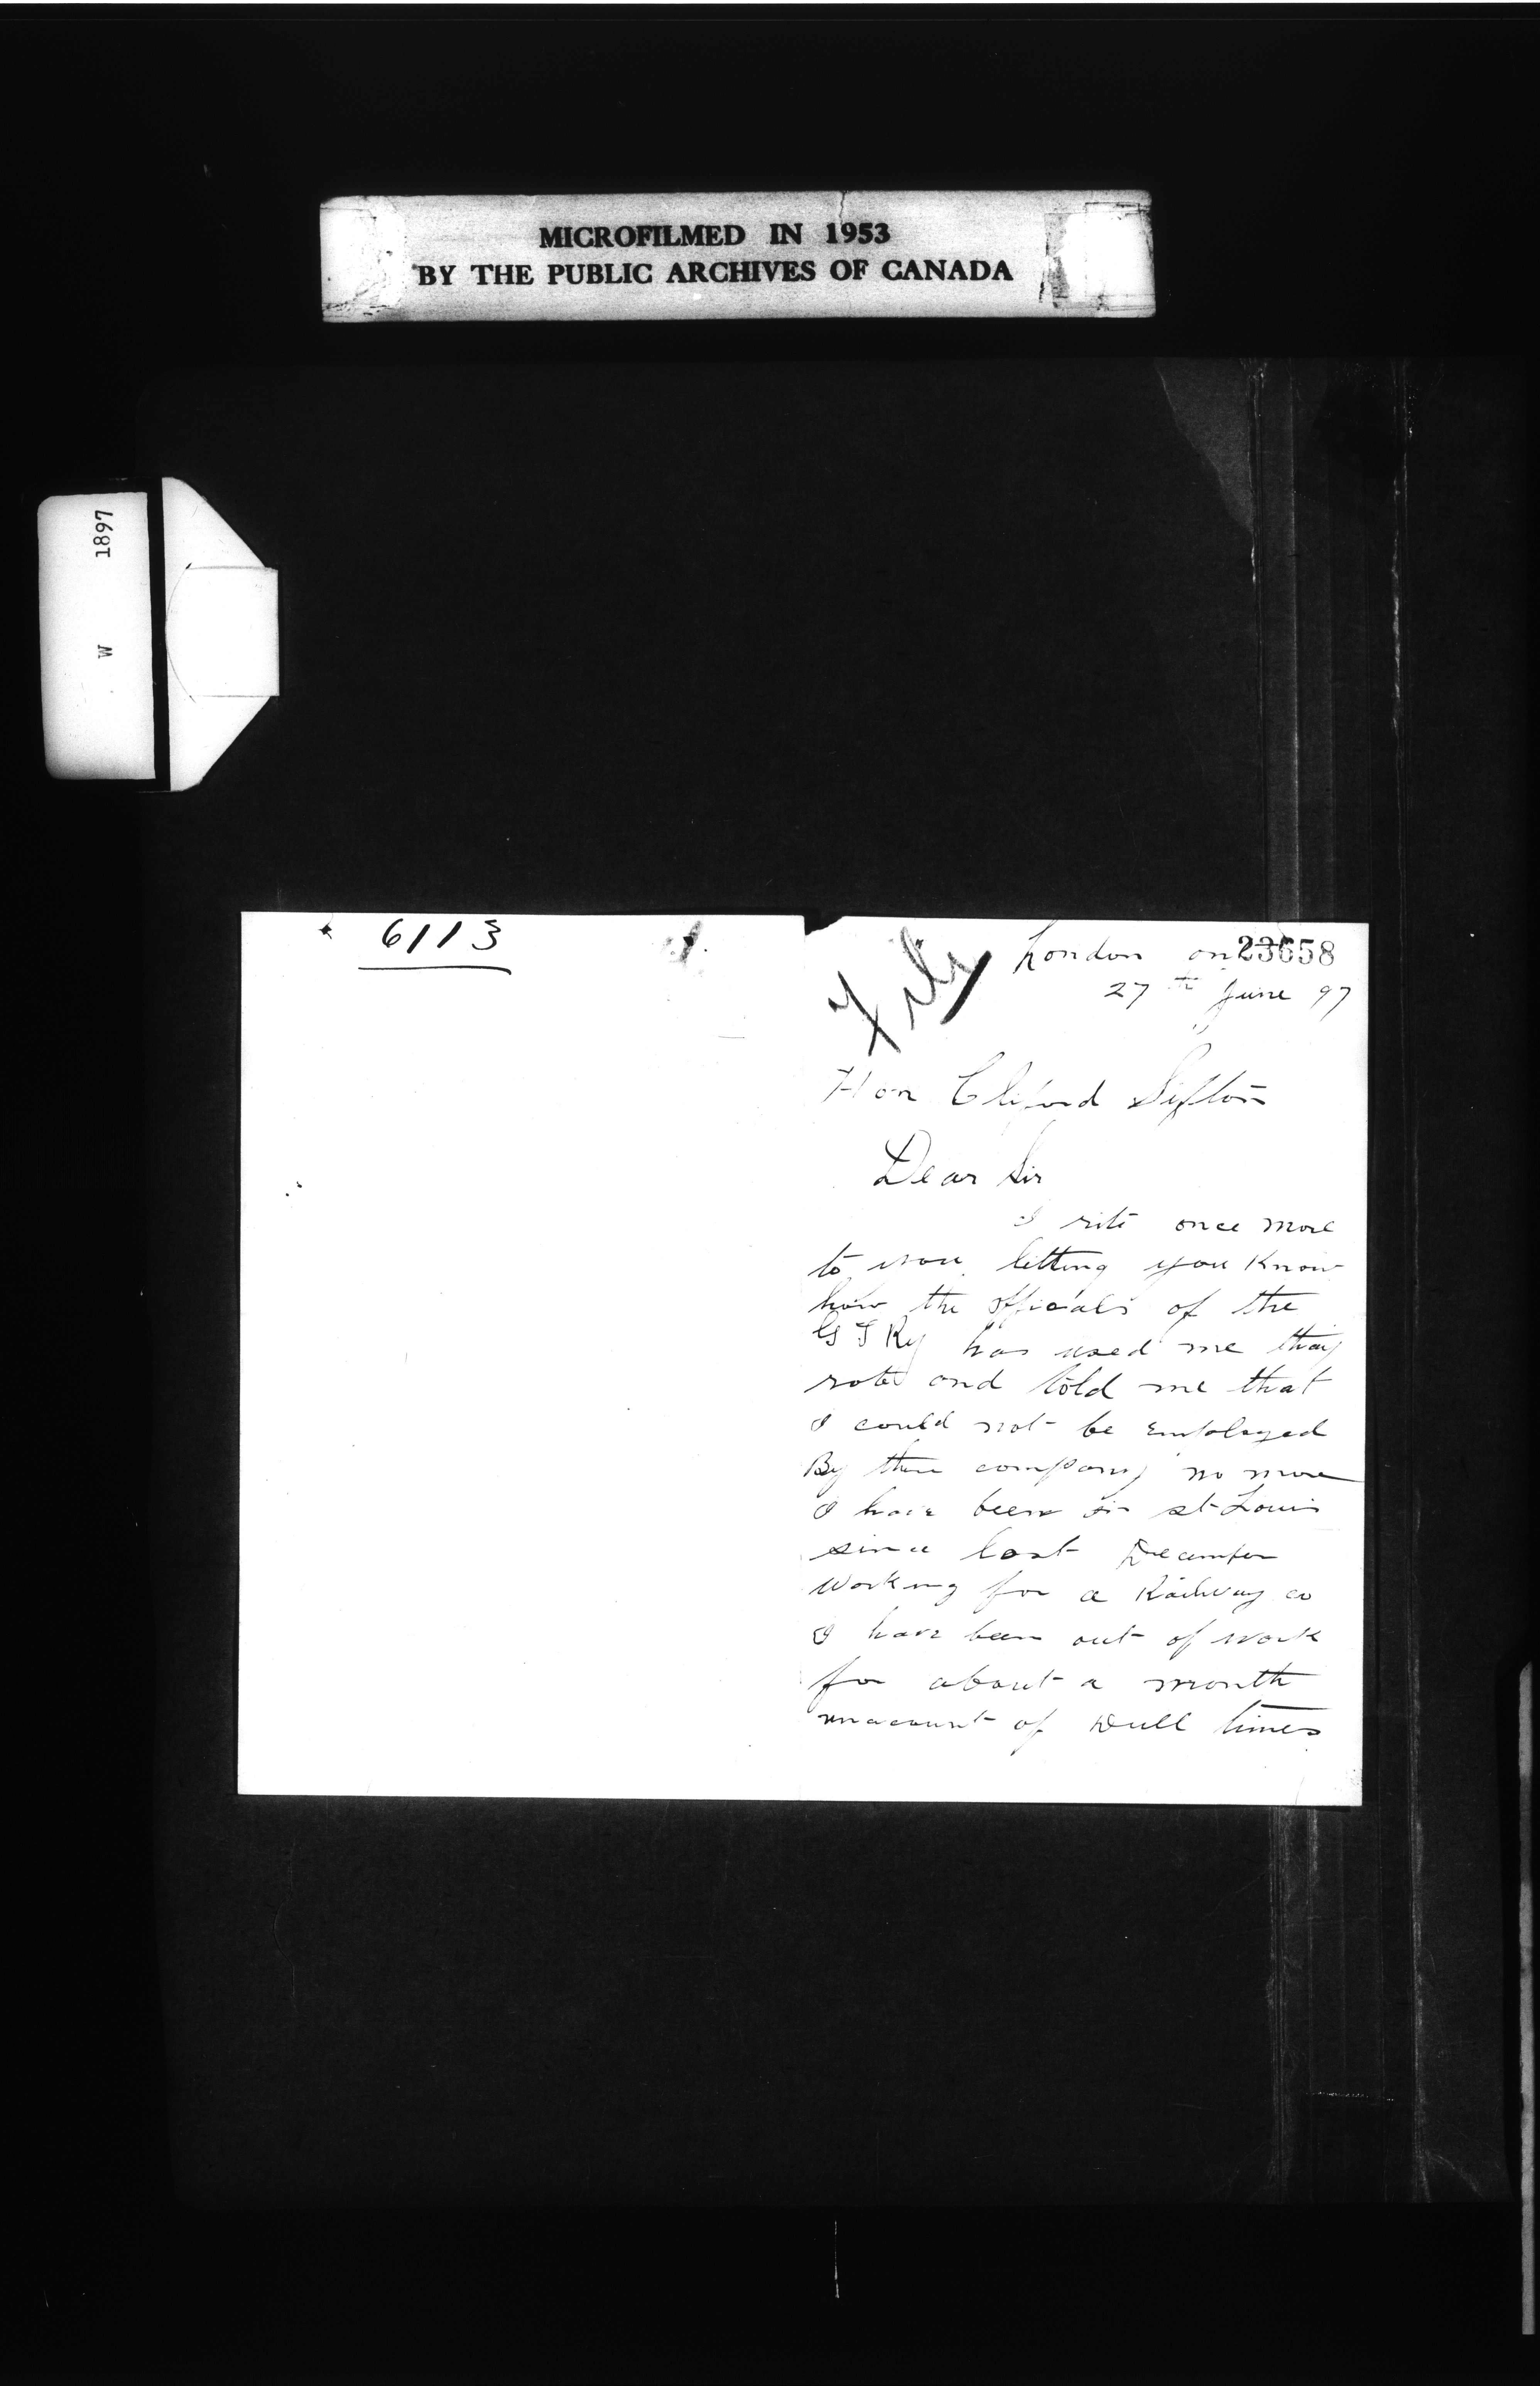 MICROFILMED IN 1953
BY THE PUBLIC ARCHIVES OF CANADA
W 1897
6113
File
London on 23658
27th June 97
Hon Cliford Sifton
Dear Sir
I rite once more
to you letting you Know
how the officals of the
G T Ry has used me thay
rote and told me that
I could not be Employed
By there company no more
I have been in st Louis
since last December
Working for a Railway co
I have been out of work
for about a month
onacount of Dull times